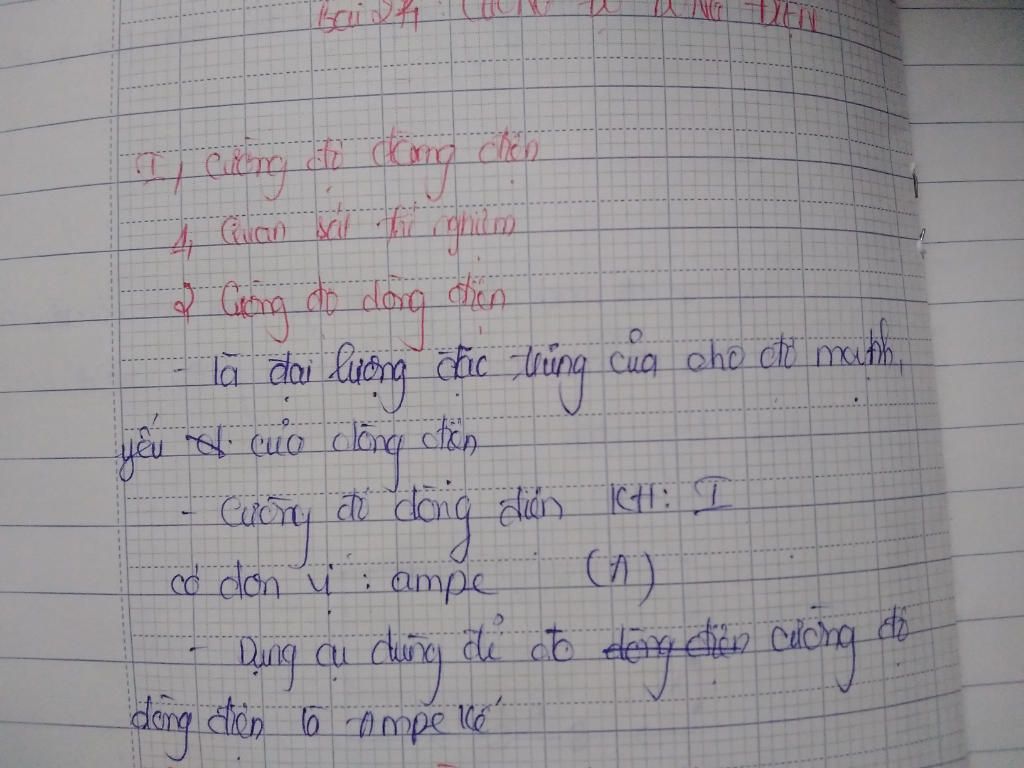 Bài 24: CƯỜNG ĐỘ DÒNG ĐIỆN
I, Cường độ dòng điện
1, Quan sát thí nghiệm
2 Cường độ dòng điện
- là đại lượng đặc trưng của cho độ mạnh,
yếu của dòng điện
- Cường độ dòng điện KH: I
có đơn vị : ampe (A)
- Dụng cụ dùng để đo dòng điện cường độ
dòng điện là Ampe kế